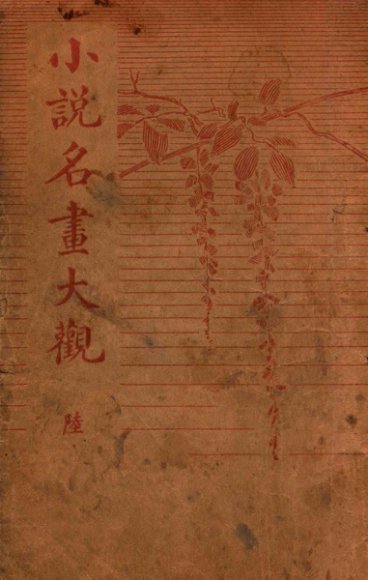 小說名畫大觀
陸